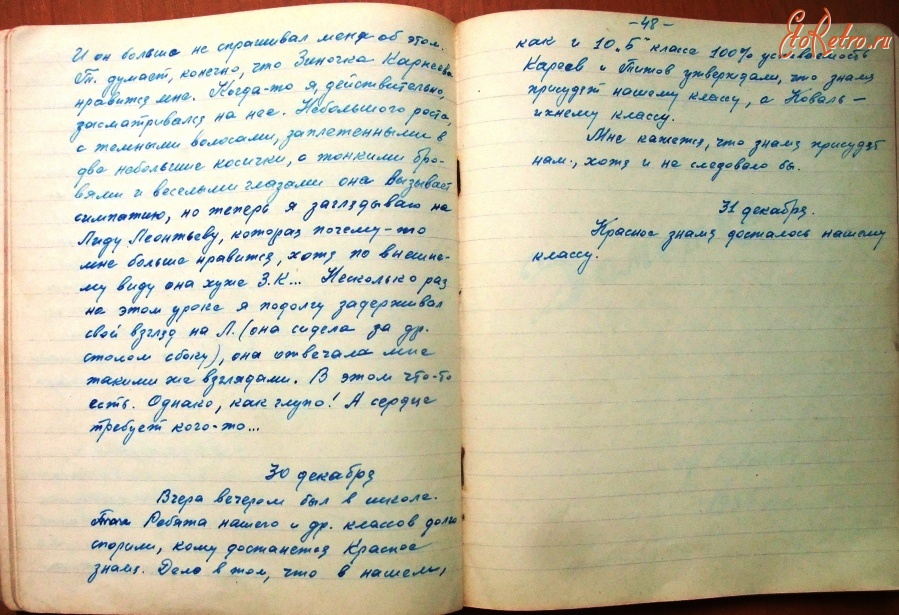 И он больше не спрашивал меня об этом.
Т. думает, конечно, что Зиночка Карнеева
нравится мне. Когда-то я, действительно,
засматривался на нее. Небольшого роста,
с темными волосами, заплетенными в
две небольшие косички, с тонкими бро-
вями и веселыми глазами она вызывает
симпатию, но теперь я заглядываю на
Лиду Леонтьеву, которая почему-то
мне больше нравится, хотя по внешне-
му виду она хуже З.К... Несколько раз
на этом уроке я подолгу задерживал
свой взгляд на Л. (она сидела за др.
столом сбоку), она отвечала мне
такими же взглядами. В этом что-то
есть. Однако, как глупо! А сердце
требует кого-то...
30 декабря
Вчера вечером был в школе.
Ребята нашего и др. классов долго
спорили, кому достанется Красное
знамя. Дело в том, что в нашем,
-48-
как и 10 „Б" класса 100% успеваемость
Кареев и Титов утверждали, что знамя
присудят нашему классу, а Коваль -
ихнему классу.
Мне кажется, что знамя присудят
нам, хотя и не следовало бы.
31 декабря.
Красное знамя досталось нашему
классу.
EtoRetro.ru